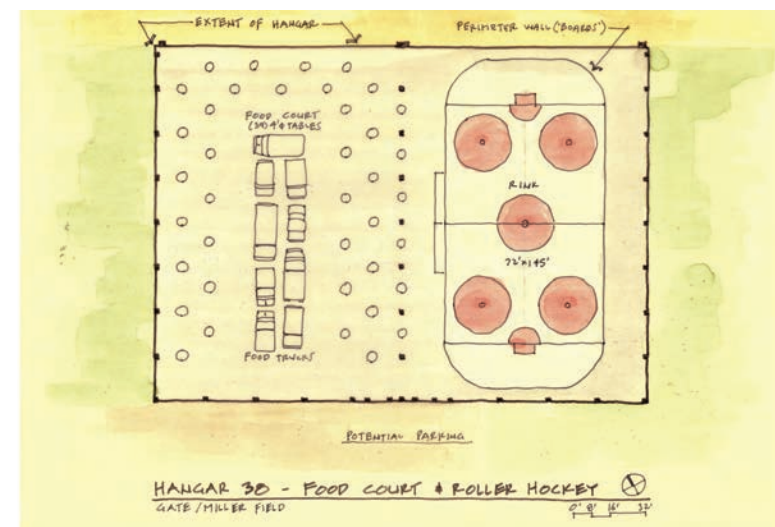 EXTENT OF HANGAR
PERIMETER WALL ('BOARDS')
FOOD COURT
(39) 4'ϕ TABLES
RINK
72'x145'
FOOD TRUCKS
POTENTIAL PARKING
HANGAR 38 - FOOD COURT & ROLLER HOCKEY
GATE / MILLER FIELD
0' 8' 16' 32'